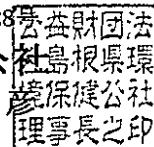 8号
公社
彦
公益財団法
島根県環
境保健公社
理事長之印